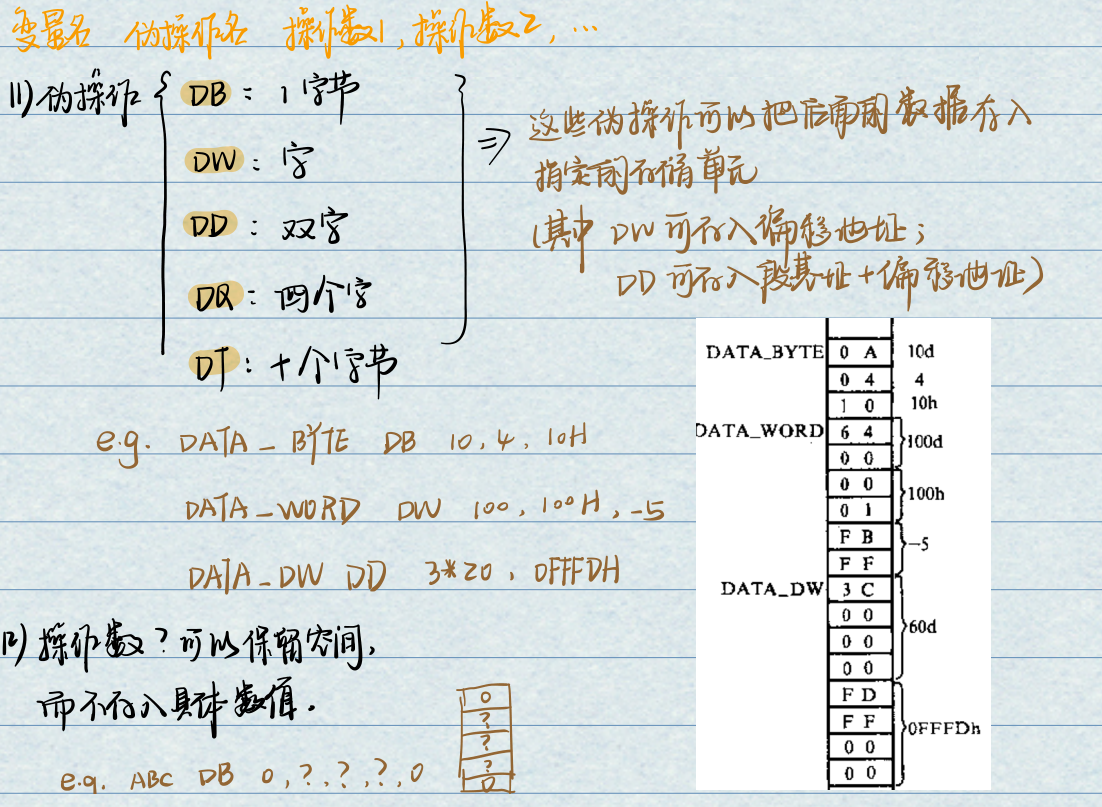 变量名 伪操作名 操作数1,操作数2,…
(1)伪操作
DB：1字节
DW：字
DD：双字
DQ：四个字
DT：十个字节
⇒ 这些伪操作可以把后面的数据存入
指定的存储单元
(其中 DW可存入偏移地址；
DD可存入段基址+偏移地址)
e.g. DATA_BYTE DB 10,4,10H
DATA_WORD DW 100,100H,-5
DATA_DW DD 3*20,0FFFDH
DATA_BYTE 0 A 10d
0 4 4
1 0 10h
DATA_WORD 6 4 100d
0 0
0 0 100h
0 1
F B -5
F F
DATA_DW 3 C
0 0 60d
0 0
0 0
F D
F F 0FFFDh
0 0
0 0
(2)操作数?可以保留空间,
而不存入具体数值.
e.g. ABC DB 0,?,?,?,0
0
?
?
?
0